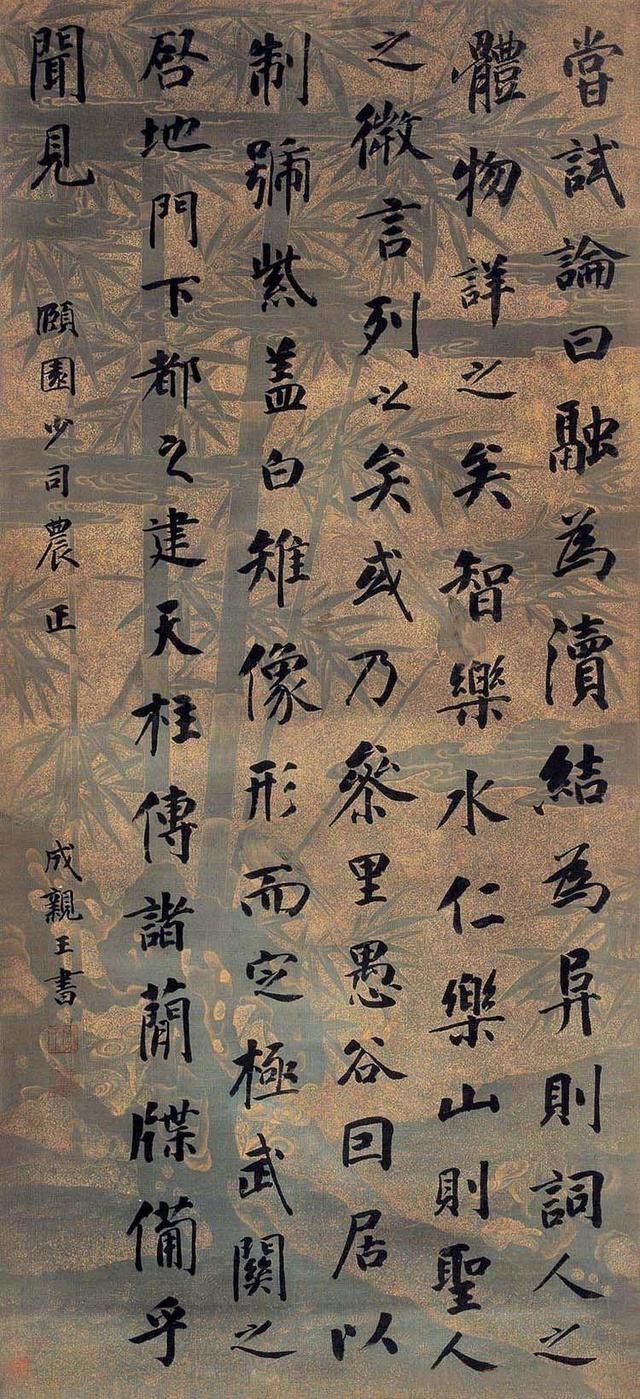 嘗試論曰融為瀆結為異則詞人之
體物詳之矣智樂水仁樂山則聖人
之微言列以矣或乃叅里愚谷回居以
制號紫盖白雉像形而定極武關之
啓地門下都之建天柱傳諸蕳牒備乎
聞見
頤園少司農正
成親王書